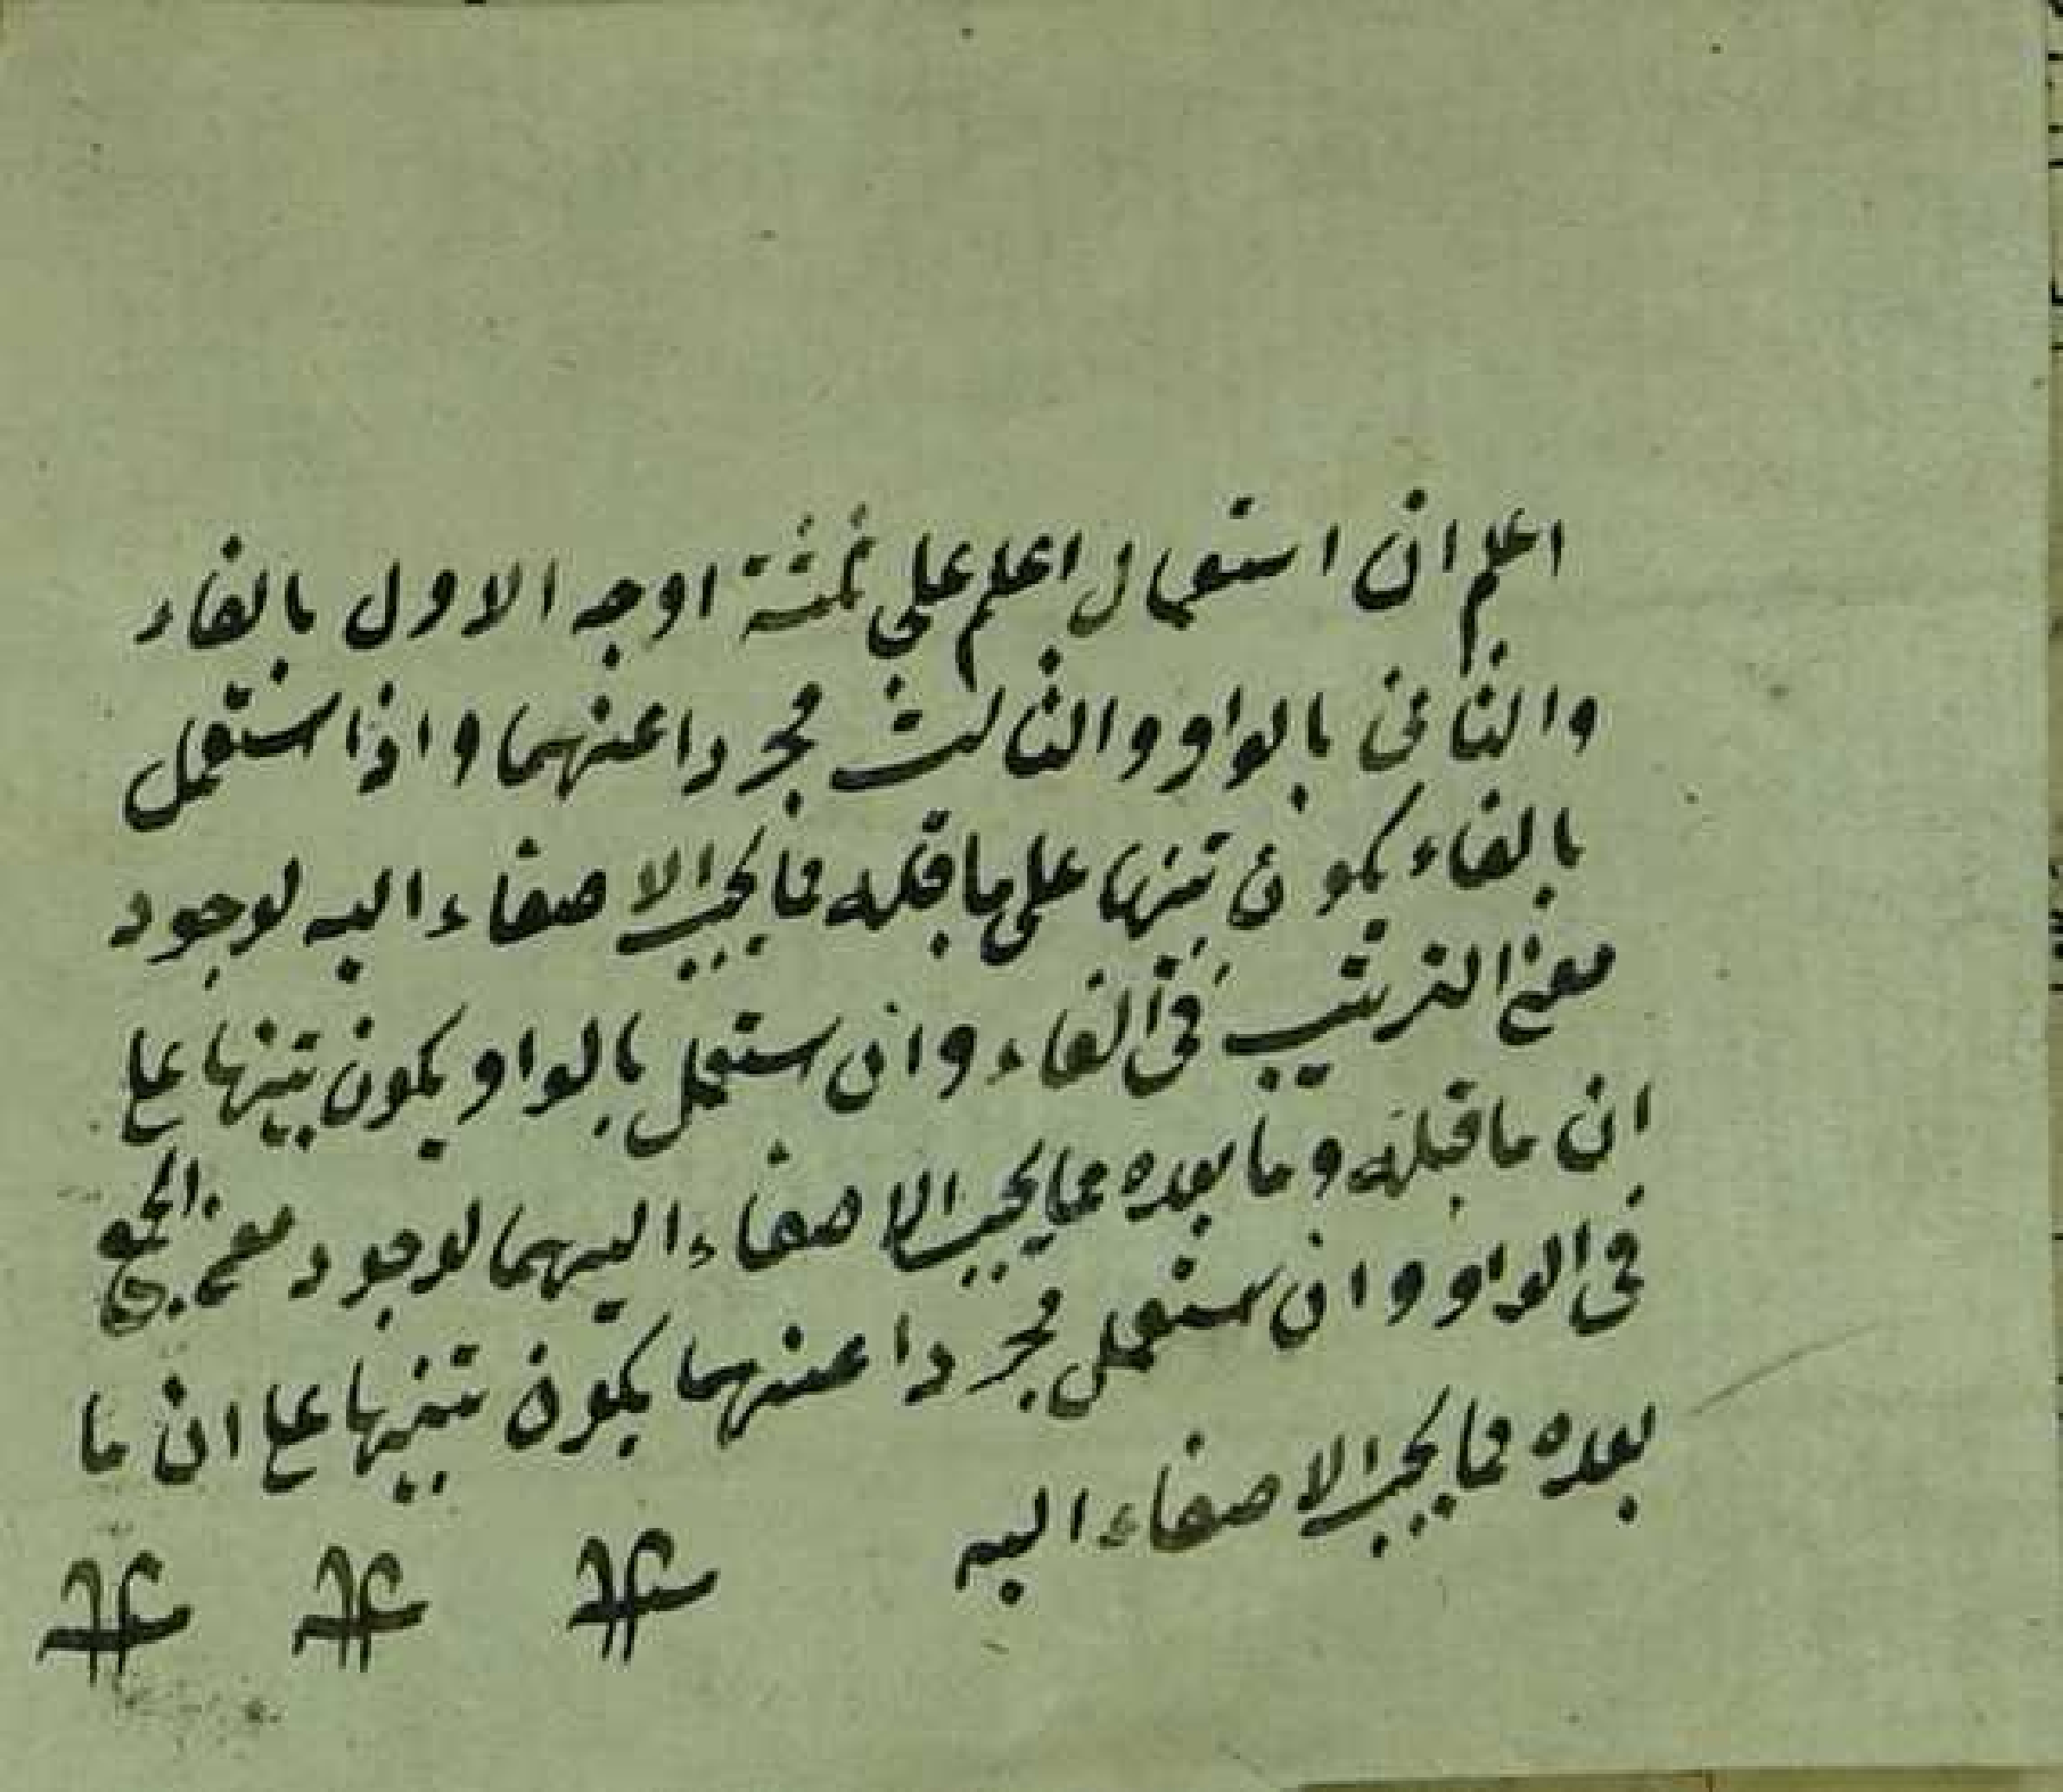 اعلم ان استعمال اعلم على ثلثة اوجه الاول بالفاء
والثانى بالواو والثالث مجردا عنهما واذا ستعمل
بالفاء يكون تنبيها على ما قبله مما يجب الاصغاء اليه لوجود
معنى الترتيب فى الفاء وان ستعمل بالواو يكون تنبيها على
ان ما قبله وما بعده مما يجب الاصغاء اليهما لوجود معنى الجمع
فى الواو وان ستعمل مجردا عنهما يكون تنبيها على ان ما
بعده مما يجب الاصغاء اليه